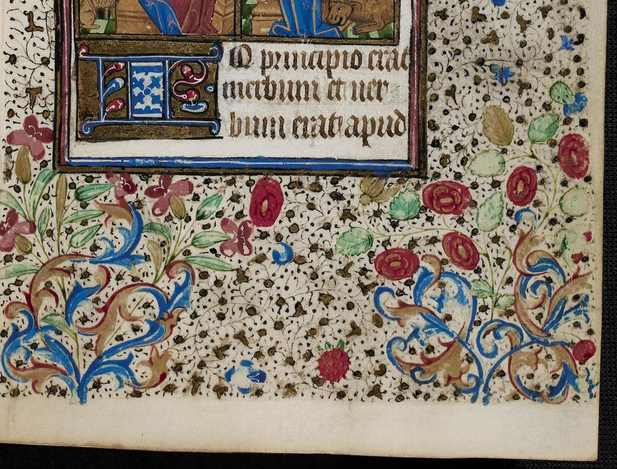 IN principio erat
uerbum et uer
bum erat apud